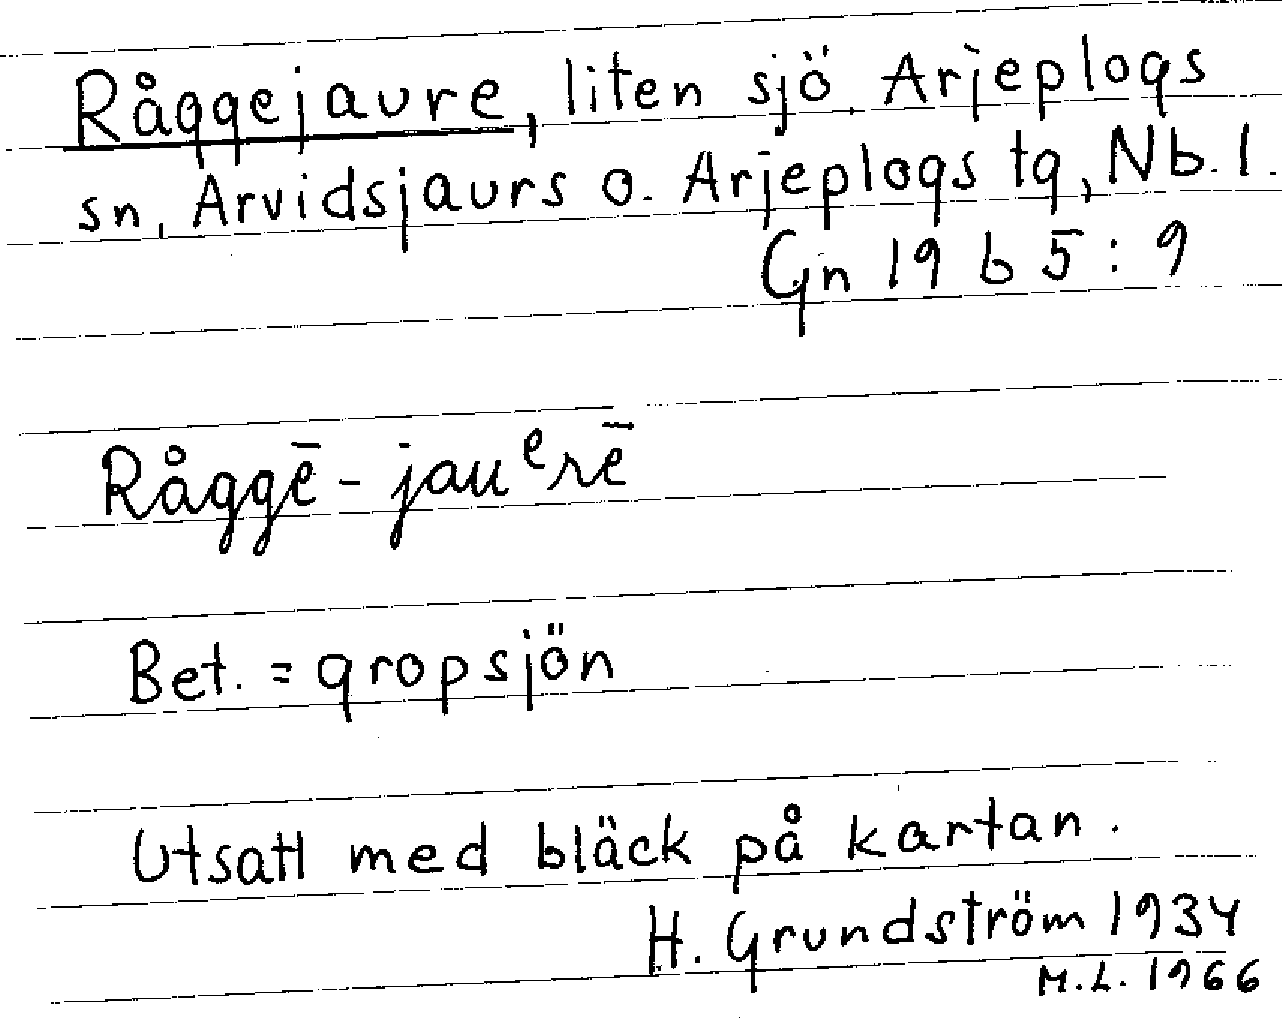 Råggejaure, liten sjö. Arjeplogs
sn, Arvidsjaurs o. Arjeplogs tg, Nb. l.
Gn 19 b 5 : 9
Råggē - jauᵉrē
Bet. = gropsjön
Utsatt med bläck på kartan.
H. Grundström 1934
M.L. 1966